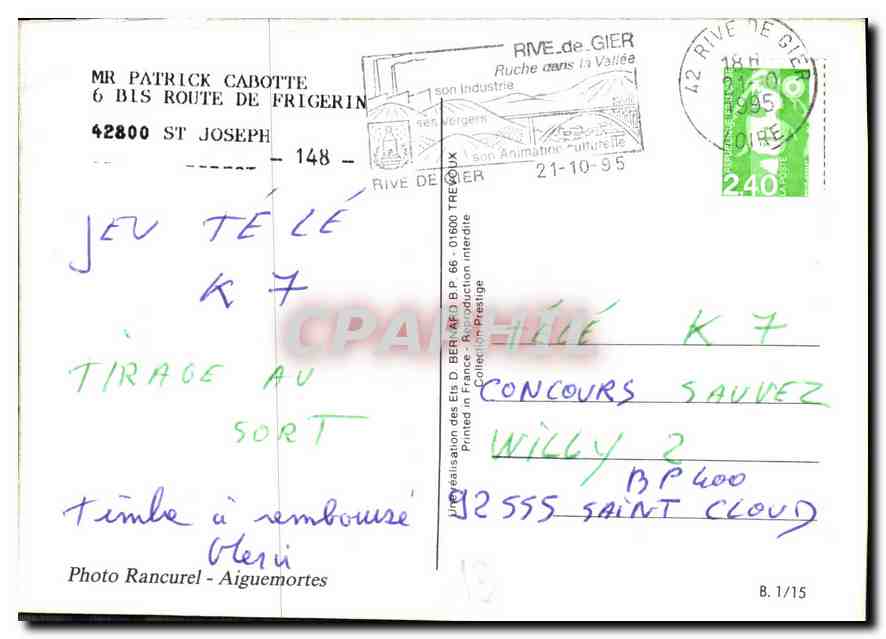 MR PATRICK CABOTTE
6 BIS ROUTE DE FRIGERIN
42800 ST JOSEPH
- 148 -
RIVE DE GIER
RIVE-de-GIER
Ruche dans la Vallée
son Industrie
ses vergers
son Animation culturelle
21-10-95
42 RIVE DE GIER
18H
21-10
1995
LOIRE
LA POSTE
2,40
JEU TÉLÉ
K 7
TIRAGE AU
SORT
Timbre à remboursé
Merci
Photo Rancurel - Aiguemortes
Une réalisation des Ets D. BERNARD B.P. 66 - 01600 TREVOUX
Printed in France - Reproduction interdite
Collection Prestige
CPAPHIL
TÉLÉ K 7
CONCOURS SAUVEZ
WILLY 2
BP 400
92555 SAINT CLOUD
B. 1/15